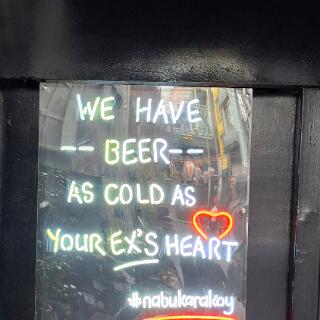 WE HAVE
-- BEER--
AS COLD AS
YOUR EX'S HEART
#nabukarakoy